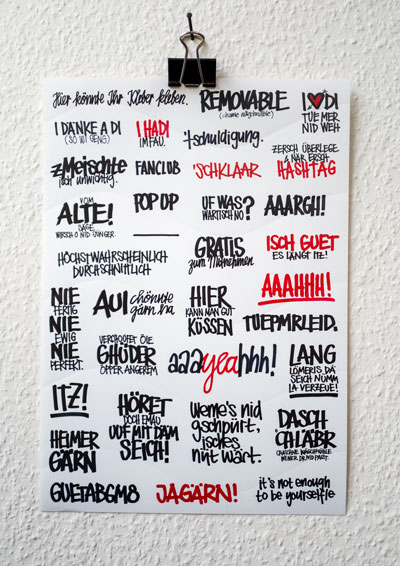 Hier könnte Ihr Kleber kleben.
REMOVABLE
I ♥ DI
TUE MER
NID WEH
I DÄNKE A DI
(SO WI GENG)
I HADI
IM FAU.
'tschuldigung.
ZERSCH ÜBERLEGE
& NÄR ERSCH
HASHTAG
zMeischte
isch unwichtig.
FANCLUB
'SCHKLAAR
VOM
ALTE!
SÄGE
WIRSCH O NID JÜNGER.
POP UP
UF WAS?
WARTISCH NO?
AAARGH!
HÖCHSTWAHRSCHEINLICH
DURCHSCHNITTLICH
GRATIS
zum Mitnehmen
ISCH GUET
ES LÄNGT ITZ!
AAAHHH!
NIE
FERTIG
NIE
EWIG
NIE
PERFEKT.
AUI chönnte
gärn ha
HIER
KANN MAN GUT
KÜSSEN
TUEPMRLEID.
VERCHOUFET ÖIE
GHÜDER
ÖPPER ANGEREM
aaayeahhh!
LANG
LÖMERIS DA
SEICH NÜMM
LA VERZEUE!
ITZ!
HÖRET
DOCH EMAU
UUF MIT DÄM
SEICH!
Weme's nid
gschpürt,
isches
nüt wärt.
DASCH
CHLÄBR
HEIMER
GÄRN
GUETABGM8
JAGÄRN!
it's not enough
to be yourselfie